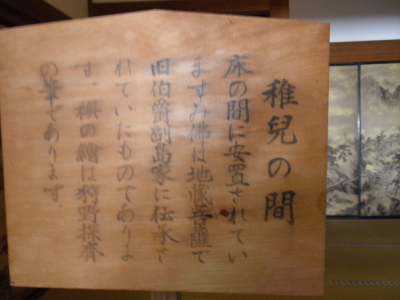 稚兒の間
床の間に安置されてい
ますみ佛は地蔵菩薩で
旧伯爵副島家に伝承さ
れていたものでありま
す。襖の繪は狩野探齊
の筆であります。